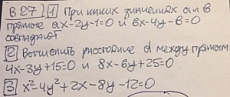 В.27 1 При каких значениях a и b
прямые ax-2y-1=0 и 6x-4y-b=0
совпадают
2 Вычислить расстояние d между прямыми
4x-3y+15=0 и 8x-6y+25=0
3 x²-4y²+2x-8y-12=0